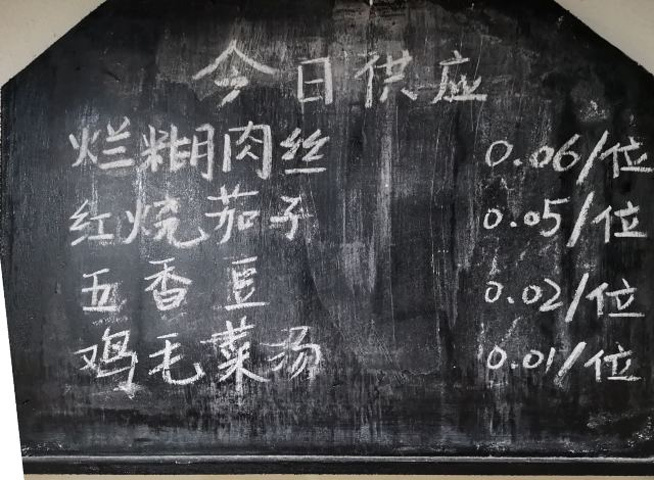 今日供应
烂糊肉丝 0.06/位
红烧茄子 0.05/位
五香豆 0.02/位
鸡毛菜汤 0.01/位